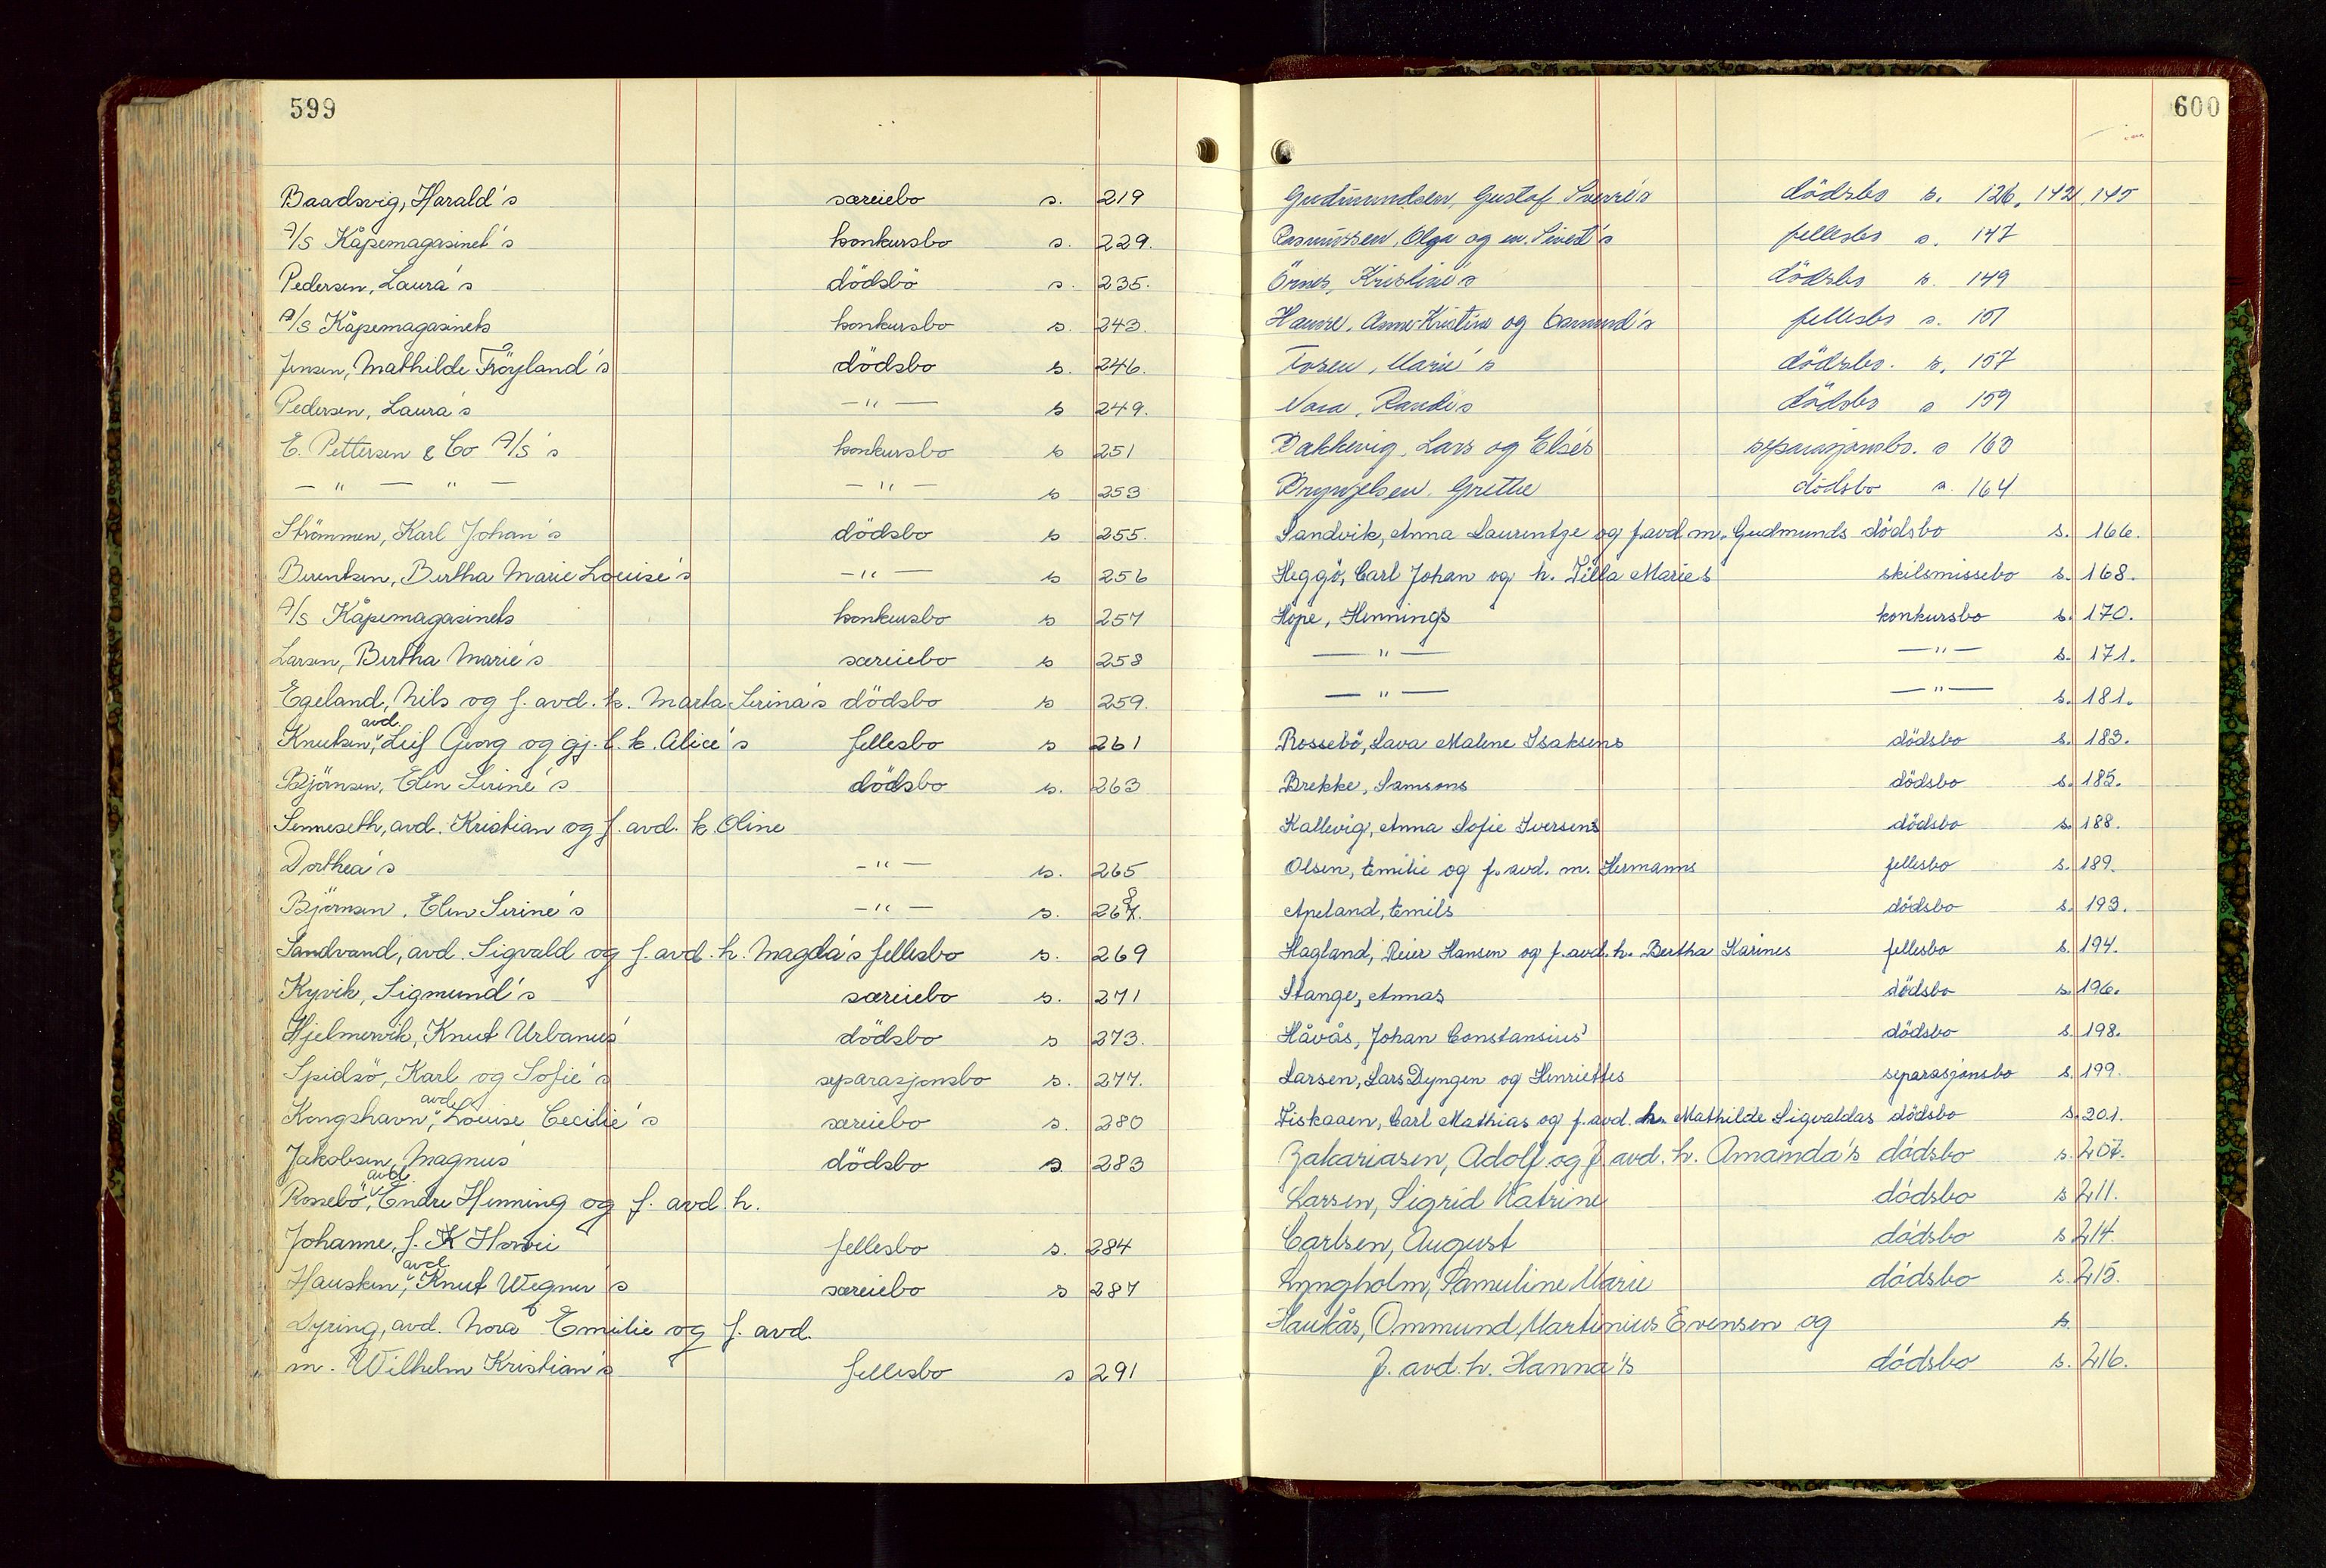 599
Baadsvig, Harald's særeiebo s. 219
A/S Kåpemagasinet's konkursbo s. 229.
Pedersen, Laura's dödsbo s. 235.
A/S Kåpemagasinets konkursbo s. 243.
Jensen, Mathilde Fröyland's dödsbo s. 246.
Pedersen, Laura's — " — s 249.
E. Pettersen & Co A/S's konkursbo s 251
— " — " — — " — s 253
Strömmen, Karl Johan's dödsbo s 255.
Berentsen, Bertha Marie Louise's — " — s 256
A/S Kåpemagasinets konkursbo s 257
Larsen, Bertha Marie's særeiebo s 258
Egeland, Nils og f. avd. h. Marta Serina's dödsbo s 259.
Knutsen, avd. Leif Georg og gj. l. h. Alice's fellesbo s 261
Björnsen, Elen Serine's dödsbo s. 263
Senneseth, avd. Kristian og f. avd. h. Oline
Dorthea's — " — s. 265
Björnsen, Elen Serine's — " — s. 268.
Sandvand, avd. Sigvald og f. avd. h. Magda's fellesbo s. 269
Kyvik, Sigmund's særeiebo s. 271
Hjelmervik, Knut Urbanus' dödsbo s 273.
Spidsö, Karl og Sofie's separasjonsbo s. 277.
Kongshavn, avd. Louise Cecilie's særeiebo s. 280
Jakobsen, Magnus' dödsbo s 283
Rossebö, avd. Endre Henning og f. avd. h.
Johanne, f. K fellesbo s. 284
Hausken, avd. Knut Wegner's særeiebo s 287
Dyring, avd. Nora Emilie og f. avd.
m. Wilhelm Kristian's fellesbo s 291
600
Gudmundsen, Gustaf Sverre's dödsbo s. 126, 142, 145
Rasmussen, Olga og m. Sivert's fellesbo s. 147
Örnes, Kristine's dödsbo s. 149
Anne Kristine og fellesbo s. 151
Marie's dödsbo. s. 157
Randi's dödsbo s 159
Bakkevig, Lars og Else's separasjonsbo. s 163
Brynjelsen, Grethe dödsbo s. 164
Sandvik, Anna Laurentze og f.avd m. Gudmunds dödsbo s. 166.
Heggö, Carl Johan og h. Tilla Maries skilsmissebo s. 168.
Hope, Hennings konkursbo s. 170.
— " — — " — s. 171.
— " — — " — s. 181.
Rossebö, Lava Malene Isaksens dödsbo s. 183.
Brekke, Samsons dödsbo s. 185.
Kallevig, Anna Sofie Iversens dödsbo s. 188.
Olsen, Emilie og f. avd. m. Hermanns fellesbo s. 189.
Apeland, Emils dödsbo s. 193.
Hagland, Reier Hansen og f. avd. h. Bertha Karines fellesbo s. 194.
Stange, Annas dödsbo s. 196.
Håvås, Johan Constansius' dödsbo s. 198.
Larsen, Lars Dyngen og Henriettes separasjonsbo s. 199.
Fiskaaen, Carl Mathias og f. avd. h. Mathilde Sigvaldas dödsbo s. 201.
Zakariasen, Adolf og f. avd. h. Amanda's dödsbo s. 207.
Larsen, Sigrid Katrine dödsbo s 211.
Carlsen, August dödsbo s 214.
Lyngholm, Samuline Marie dödsbo s. 215.
Haukås, Ommund Martinius Evensen og s.
f. avd. h. Hanna's dödsbo s. 216.